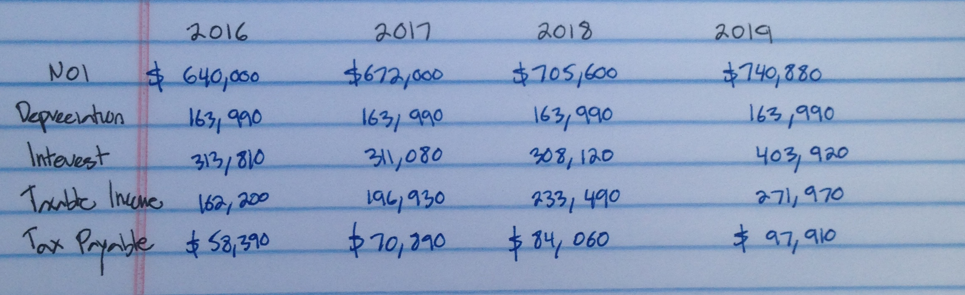 2016 2017 2018 2019
NOI $ 640,000 $672,000 $705,600 $740,880
Depreciation 163,990 163,990 163,990 163,990
Interest 313,810 311,080 308,120 403,920
Taxable Income 162,200 196,930 233,490 271,970
Tax Payable $ 58,390 $70,890 $ 84,060 $ 97,910